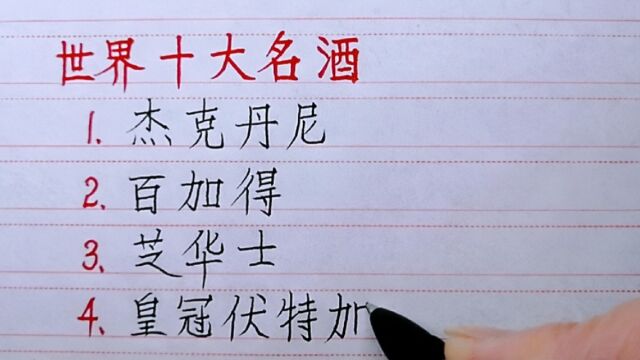 世界十大名酒
1. 杰克丹尼
2. 百加得
3. 芝华士
4. 皇冠伏特加